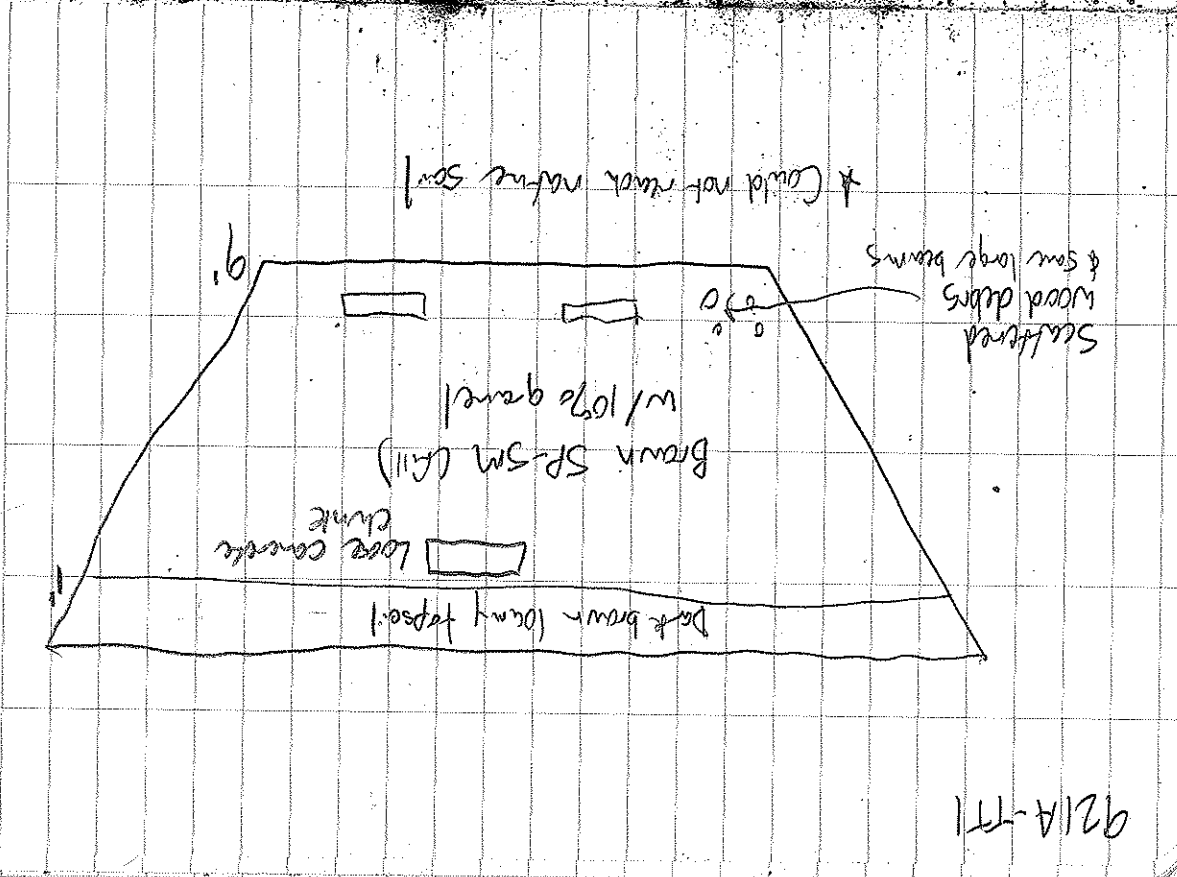 921A-TT1
Dark brown loamy topsoil
1'
Loose concrete
chunk
Brown SP-SM (fill)
w/ 10% gravel
Scattered
wood debris
& some large beams
9'
* Could not reach native soil